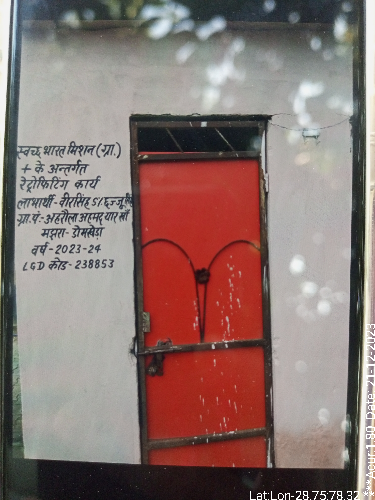 स्वच्छ भारत मिशन (ग्रा.)
+ के अन्तर्गत
रेट्रोफिटिंग कार्य
लाभार्थी - वीरसिंह S/
ग्रा.पं.- अहरौला अहमद यार खाँ
मझरा - डोमखेडा
वर्ष - 2023-24
LGD कोड - 238853
Lat Lon-28.75:78.32
Acur:1.80 Date 21-12-2023